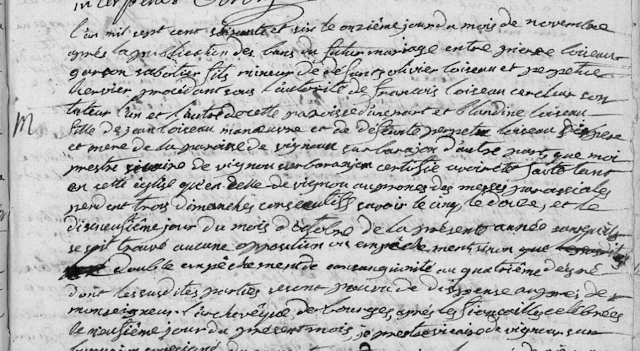 l'an mil sept cent soixante et six le onzième jour du mois de novembre
après la publication des bans du futur mariage entre pierre loiseau
garçon sabotier fils mineur de defunts olivier loiseau et perpetue
hervier procédant sous l'autorité de francois loiseau cercleur son
tuteur l'un et l'autre de cette paroisse d'une part et blandine loiseau
M
fille de jean loiseau manœuvre et de défunte perpetue loiseau ses père
et mère de la paroisse de vignou sur barajon d'autre part que moi
prestre vicaire de vignou sur baranjon certifie avoir été faite tant
en cette église qu'en celle de vignou au prones des messes paroissiales
pendant trois dimanches consecutifs savoir le cinq le douze et le
dixneufième jour du mois d'octobre de la présente année sans qu'ils
se soit trouvé aucune opposition ou empêchement sinon que
double empêchement de consanguinité au quatrième degré
dont les susdites parties seront pourvu de dispense auprès de
monseigneur l'archevêque de bourges, après les fiançailles célébrées
le neufième jour du présent mois, je prestre vicaire de vigneux sur